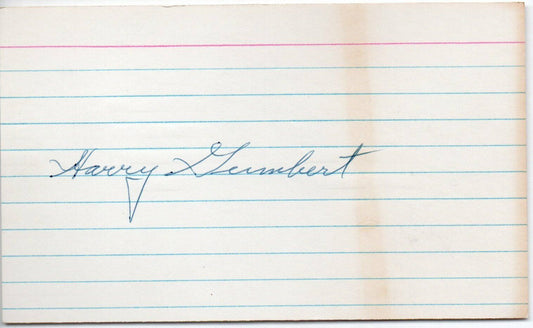 Harry Gumbert